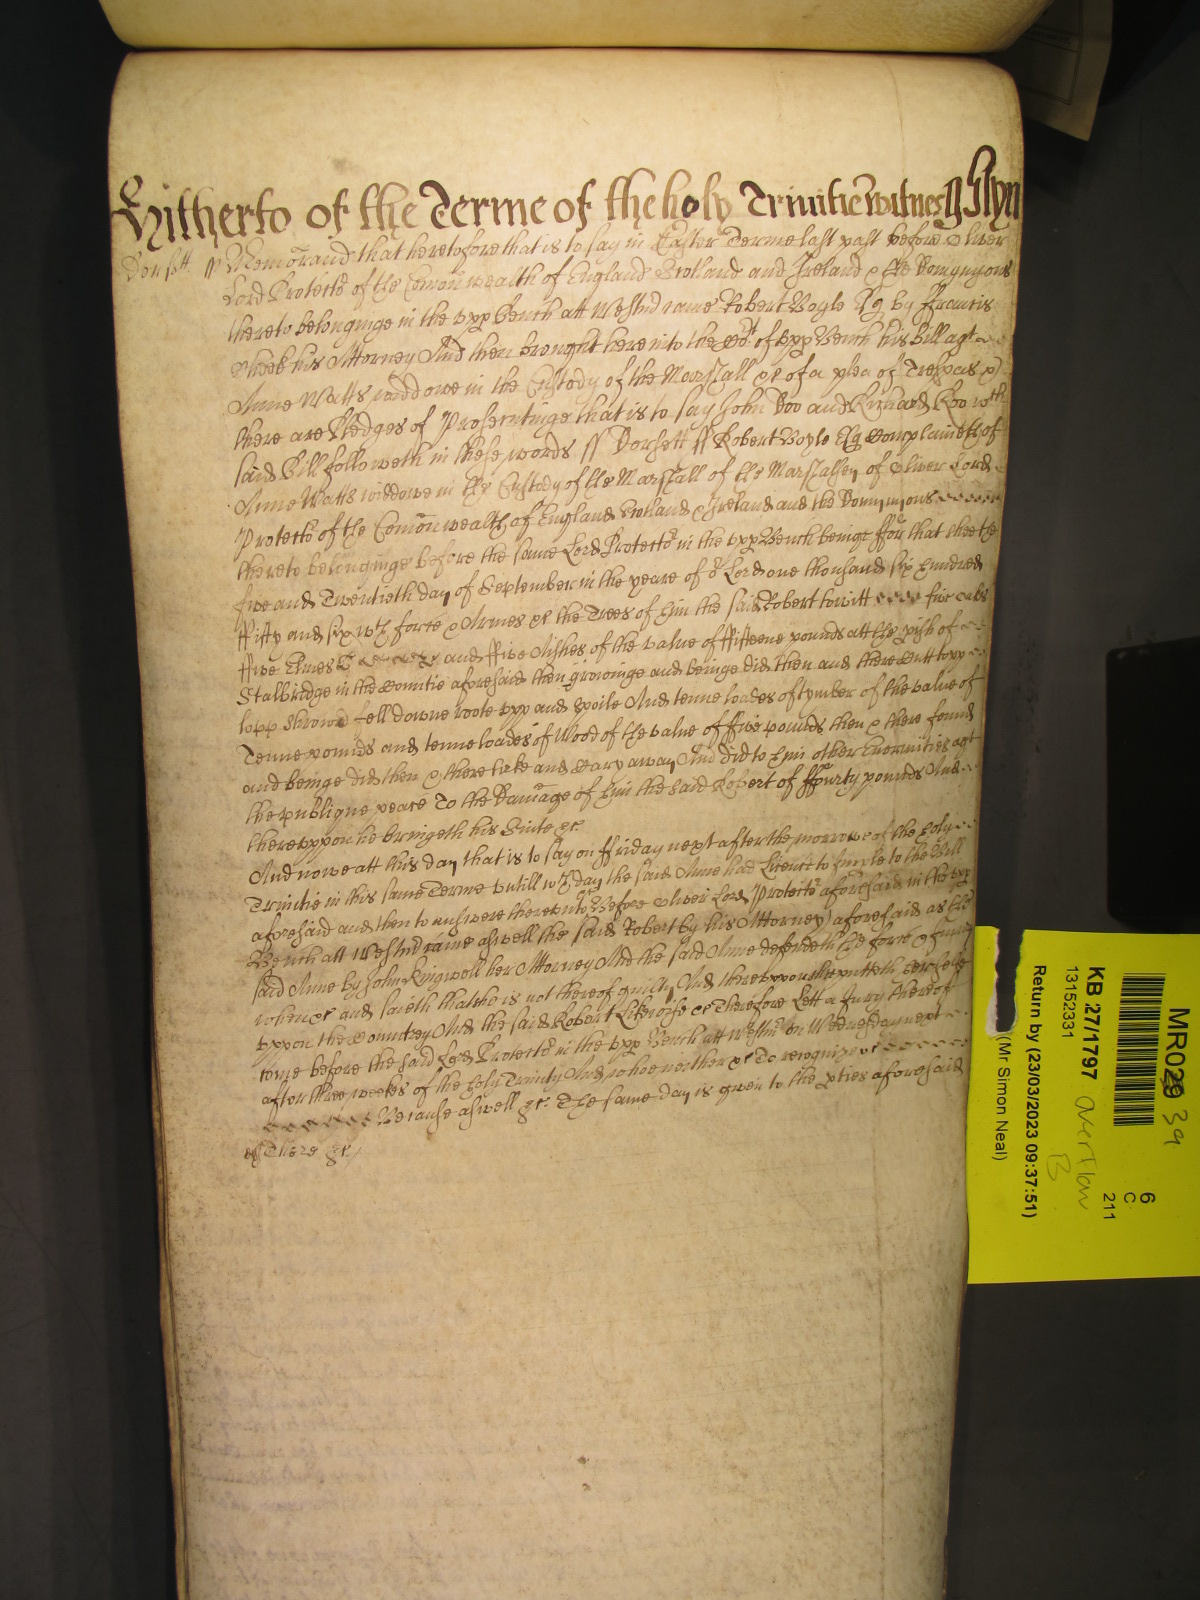 Hitherto of the Terme of the holy Trinitie Witnes J Glyn
Dorsett. ss Memorand that heretofore that is to say in Easter Terme last past before Oliver
Lord Protector of the Comonwealth of England Scotland and Ireland & the Dominions
thereto belonginge in the upp bench att Westm̃ came Robert Boyle Esq by Francis
Cheek his Attorney And then brought here into the Cort of upp Bench his bill agt
Anne Watts widdowe in the Custody of the Marshall &c of a plea of Trespas &
there are Pledges of Prosecutinge that is to say John Doo and Richard Roo wch
said Bill followeth in these words ss Dorsett ss Robert Boyle Esq Complaineth of
Anne Watts widdowe in the Custody of the Marshall of the Marshalsey of Oliver Lord
Protector of the Comonwealth of England Scotland & Ireland and the Dominions
thereto belonginge before the same Lord Protector in the upp Bench beinge ffor that shee the
five and Twentieth day of September in the yeare of or Lord one thousand six hundred
ffifty and six wth force & Armes &c the Trees of him the said Robert towitt five oakes
ffive Elmes and ffive Ashes of the value of ffifteene pounds att the pish of
Stalbridge in the Countie aforesaid then growinge and beinge did then and there Cutt topp
lopp Shrowd fell downe roote upp and spoile And tenne loades of tymber of the value of
Tenne pounds and tenne loades of Wood of the value of ffive pounds then & there found
and beinge did then & there take and Cary away And did to him other Enormities agt
the publique peace To the Damage of him the said Robert of ffourty pounds And
thereuppon he bringeth his Suite &c.
And nowe att this day that is to say on ffriday next after the morrowe of the holy
Trinitie in this same Terme untill wch day the said Anne had Licence to imple to the Bill
aforesaid and then to answere thereunto &c Before Oliver Lord Protector aforesaid in the upp
Bench att Westm̃ came aswell the said Robert by his Attorney aforesaid as the
said Anne by John Kingwell her Attorney And the said Anne defendeth the force & Iniury
when &c and saieth that she is not thereof guilty And thereuppon she putteth her selfe
uppon the Countrey And the said Robert Likewise &c Therefore Lett a Jury thereof
come before the said Lord Protector in the upp Bench att Westm̃ on Wednesday next
after three weekes of the holy Trinity And who neither &c To recognize &c
Because aswell &c. The same day is given to the pties aforesaid
There &c
MR029 39
6
C
211
KB 27/1797 overflow
B
13152331
Return by (23/03/2023 09:37:51)
(Mr Simon Neal)